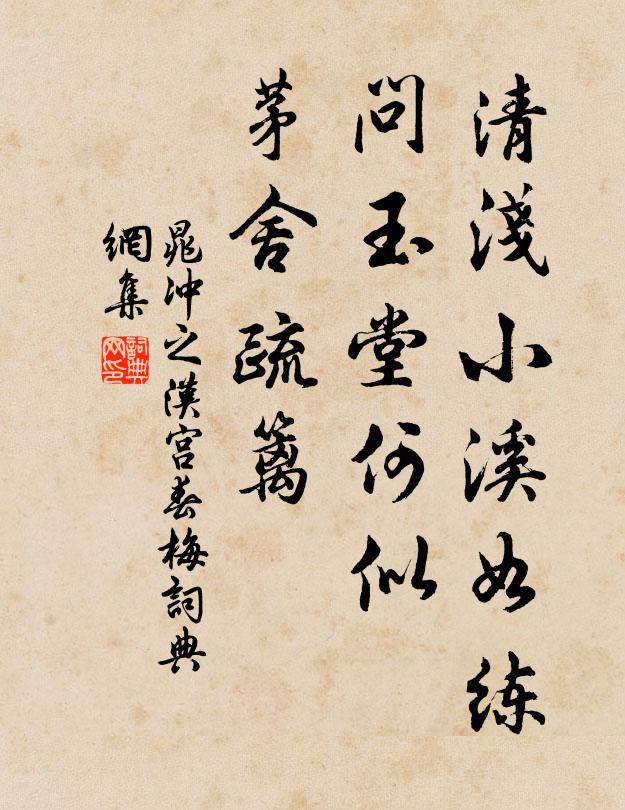 清淺小溪如练
問玉堂何似
茅舍疏籬
晁沖之漢宮春梅詞典
網集
詞典
网印